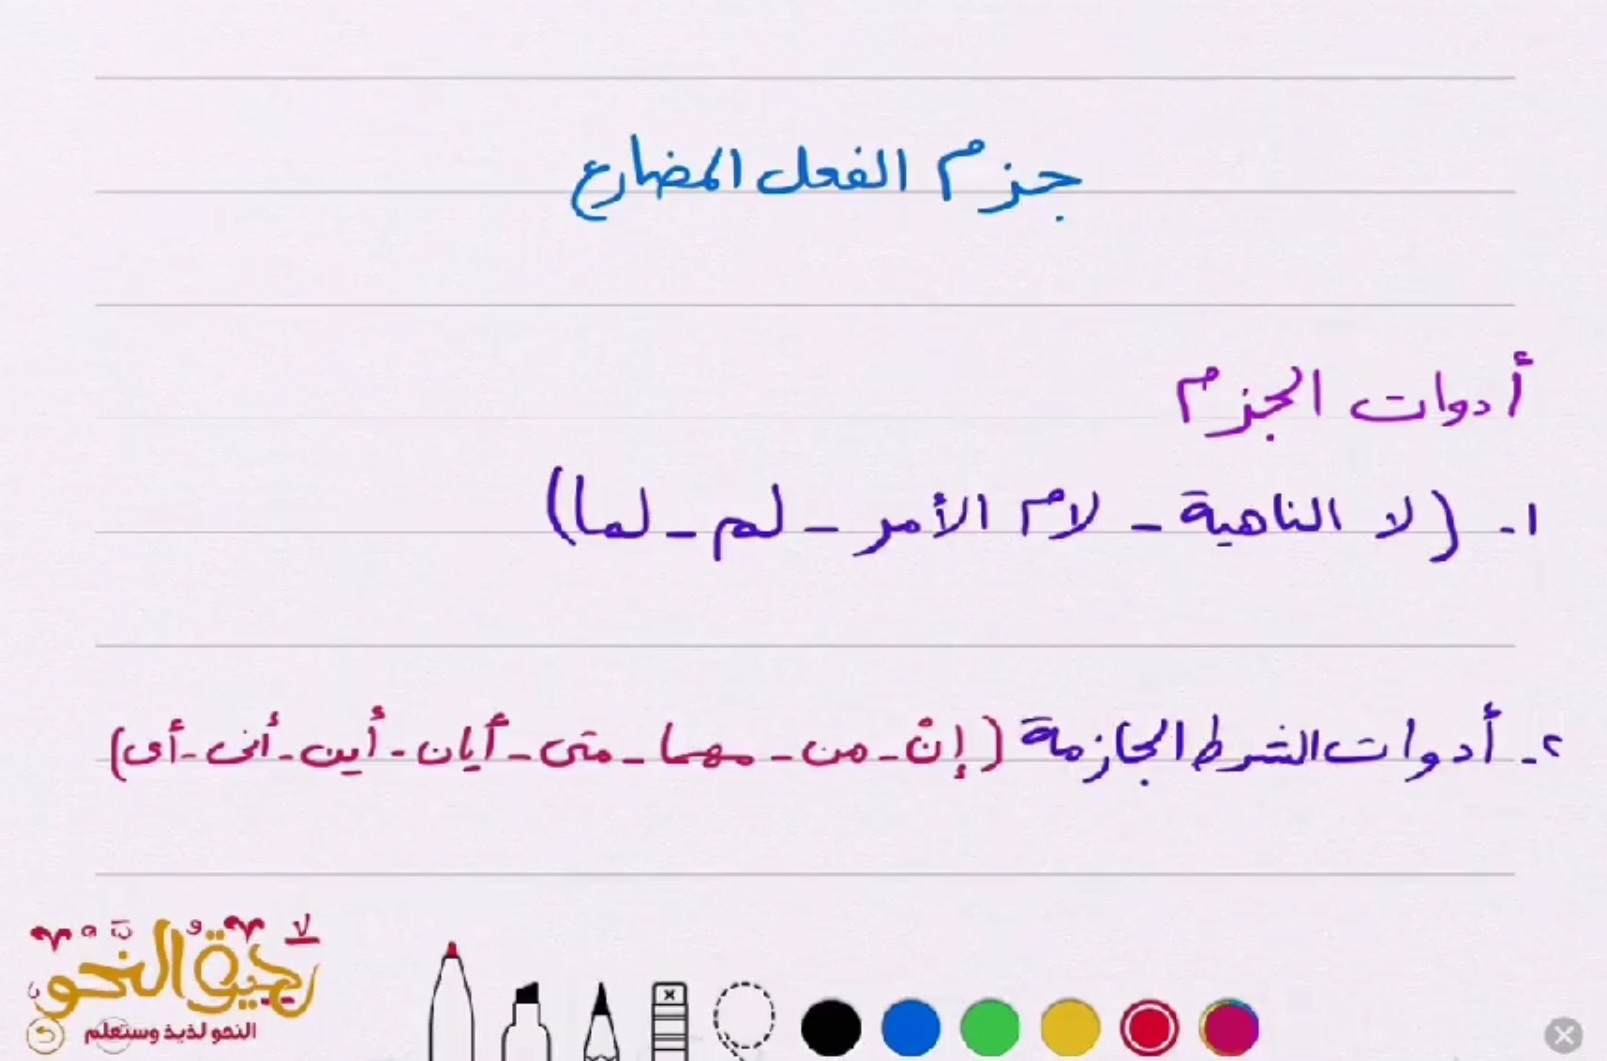 جزم الفعل المضارع
أدوات الجزم
١- (لا الناهية - لام الأمر - لم - لما)
٢- أدوات الشرط الجازمة (إنْ - من - مهما - متى - أيان - أين - أنى - أى)
رحيق النحو
النحو لذيذ وستعلم